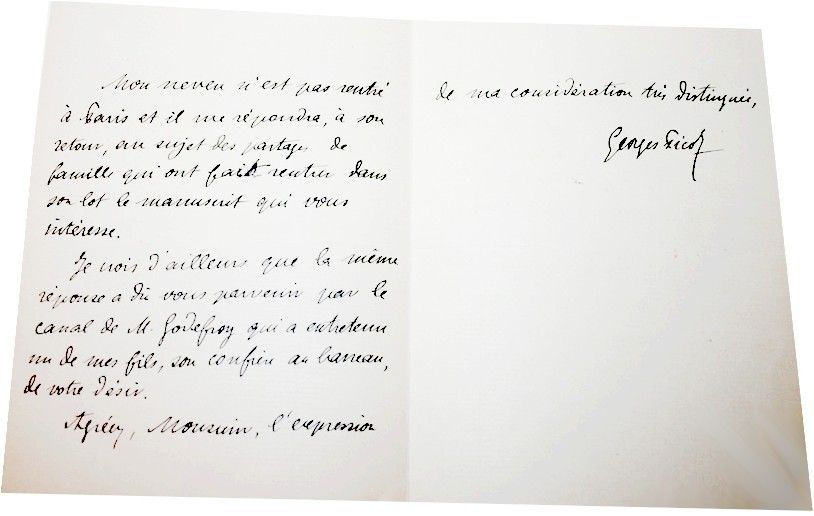 Mon neveu n'est pas rentré
à Paris et il me répondra, à son
retour, au sujet des partages de
famille qui ont fait rentrer dans
son lot le manuscrit qui vous
intéresse.
Je crois d'ailleurs que la même
réponse a dû vous parvenir par le
canal de M. Godefroy qui a entretenu
un de mes fils, son confrère au barreau,
de votre désir.
Agréez, Monsieur, l'expression
de ma considération très distinguée,
Georges Picot